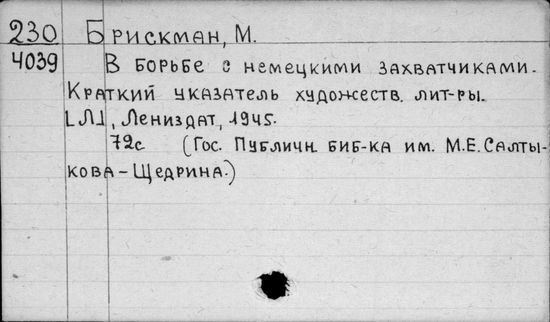 230 Брискман, М.
4039 В борьбе с немецкими захватчиками.
Краткий указатель художеств. лит-ры.
[Л], Лениздат, 1945.
72с (Гос. Публичн. биб-ка им. М.Е. Салты-
кова-Щедрина.)